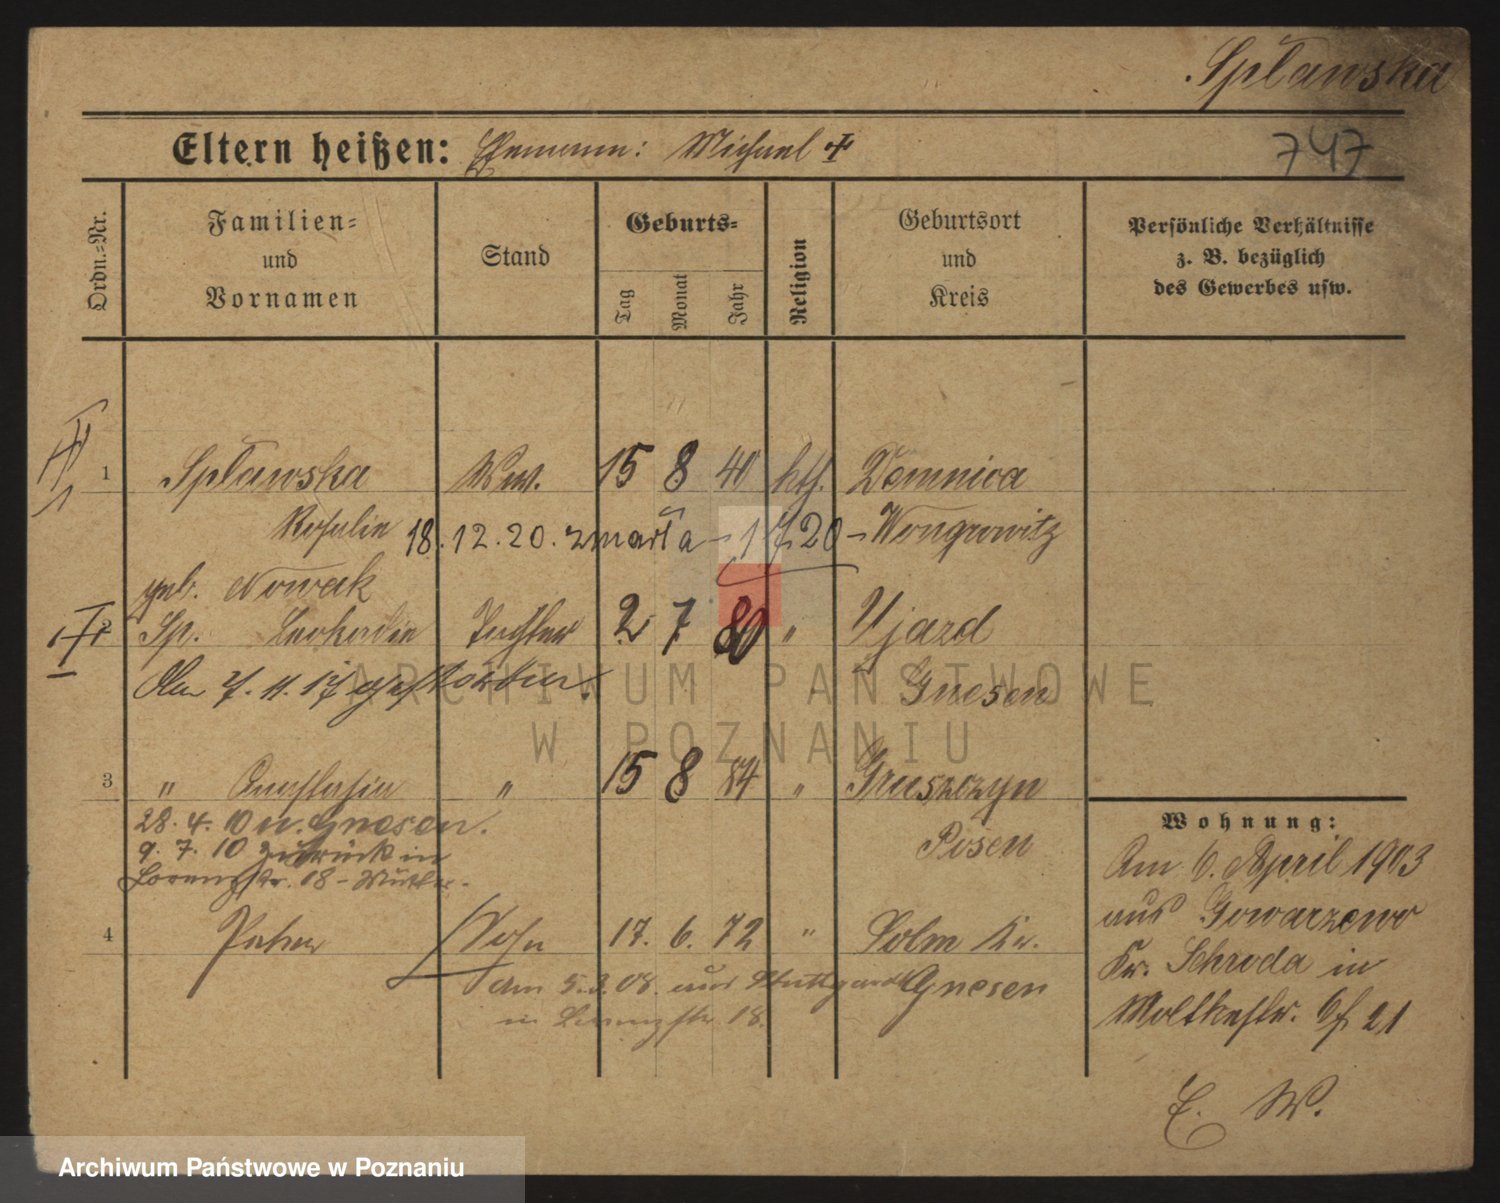 Spławska
Eltern heißen: Ehemann: Michael †
747
Ordn.-Nr.
Familien- und Vornamen
Stand
Geburts-
Tag Monat Jahr
Religion
Geburtsort und Kreis
Persönliche Verhältnisse z. B. bezüglich des Gewerbes usw.
1 Spławska Ww. 15 8 40 kth. Domnica
Rosalie 18.12.20. zmarła – 1 7 20 – Wongrowitz
geb. Nowak
2 Sp. Leokadia Tochter 2 7 80 " Ujazd
Am 7.11.17 gestorben. Gnesen
3 " Anastasia " 15 8 84 " Gruszczyn
28.4.10 n. Gnesen. Posen
9.7.10 zurück in
Lorenzstr. 18 - Mutter.
4 Peter Sohn 17. 6. 72 " Kr.
Am 5.3.08. aus Stuttgart Gnesen
in Lorenzstr. 18.
Wohnung:
Am 6. April 1903
aus Gowarzewo
Kr. Schroda in
Moltkestr. 21
E. W.
ARCHIWUM PAŃSTWOWE
W POZNANIU
Archiwum Państwowe w Poznaniu